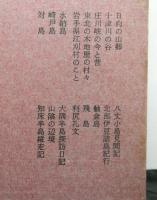 日向の山郷
十津川の谷
庄川峡の今と昔
東北の木地屋の村々
岩手県江刈村のこと
水納島
崎戸島
対島
八丈小島見聞記
北部伊豆諸島紀行
舳倉島
飛島
利尻礼文
大隅半島採訪日記
山陰の辺境
知床半島縦走記